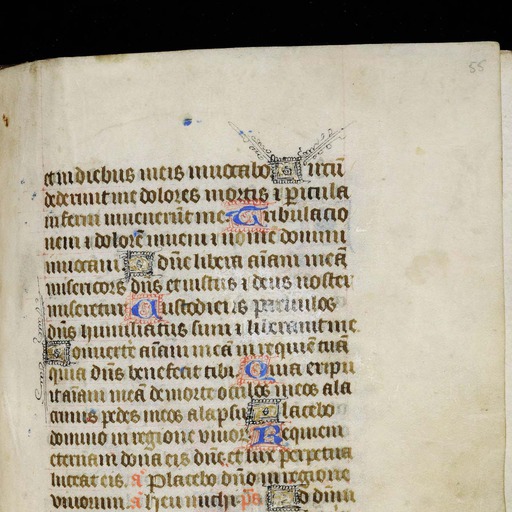 55
et in diebus meis invocabo Circū
dederunt me dolores mortis ⁊ pericula
inferni invenerūt me Tribulacio
nem ⁊ dolorē inveni ⁊ nomē domini
invocavi O dn̄e libera aīam meā
misericors dn̄s et iustus ⁊ deus noster
miseretur Custodiens parvulos
dn̄s humiliatus sum ⁊ liberavit me.
Convertē aīam meā in requiē tuā
quia dn̄s benefecit tibi Quia eripu
it aīam meā de morte oculos meos a la
crimis pedes meos a lapsu Placebo
domino in regione vivor Requiem
eternam dona eis dn̄e et lux perpetua
luceat eis. a Placebo dn̄o in regione
vivorum. a heu michi ps Ad dn̄m